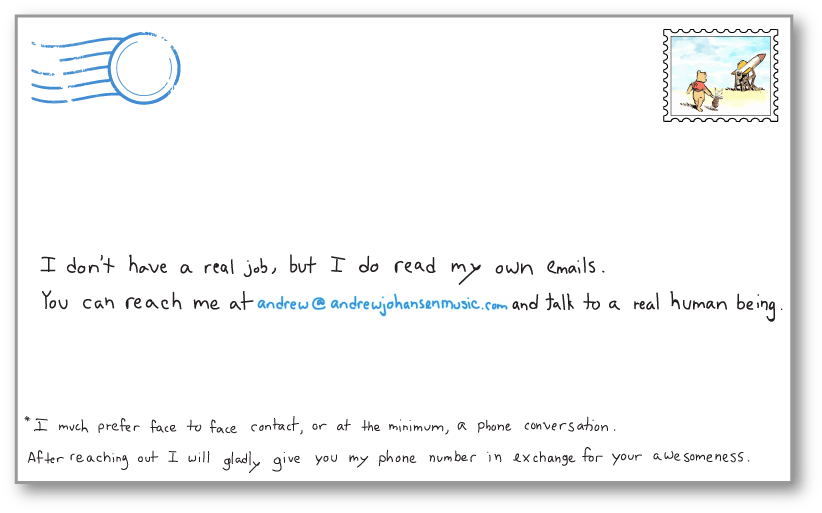 I don't have a real job, but I do read my own emails.
You can reach me at andrew@andrewjohansenmusic.com and talk to a real human being.
*I much prefer face to face contact, or at the minimum, a phone conversation.
After reaching out I will gladly give you my phone number in exchange for your awesomeness.